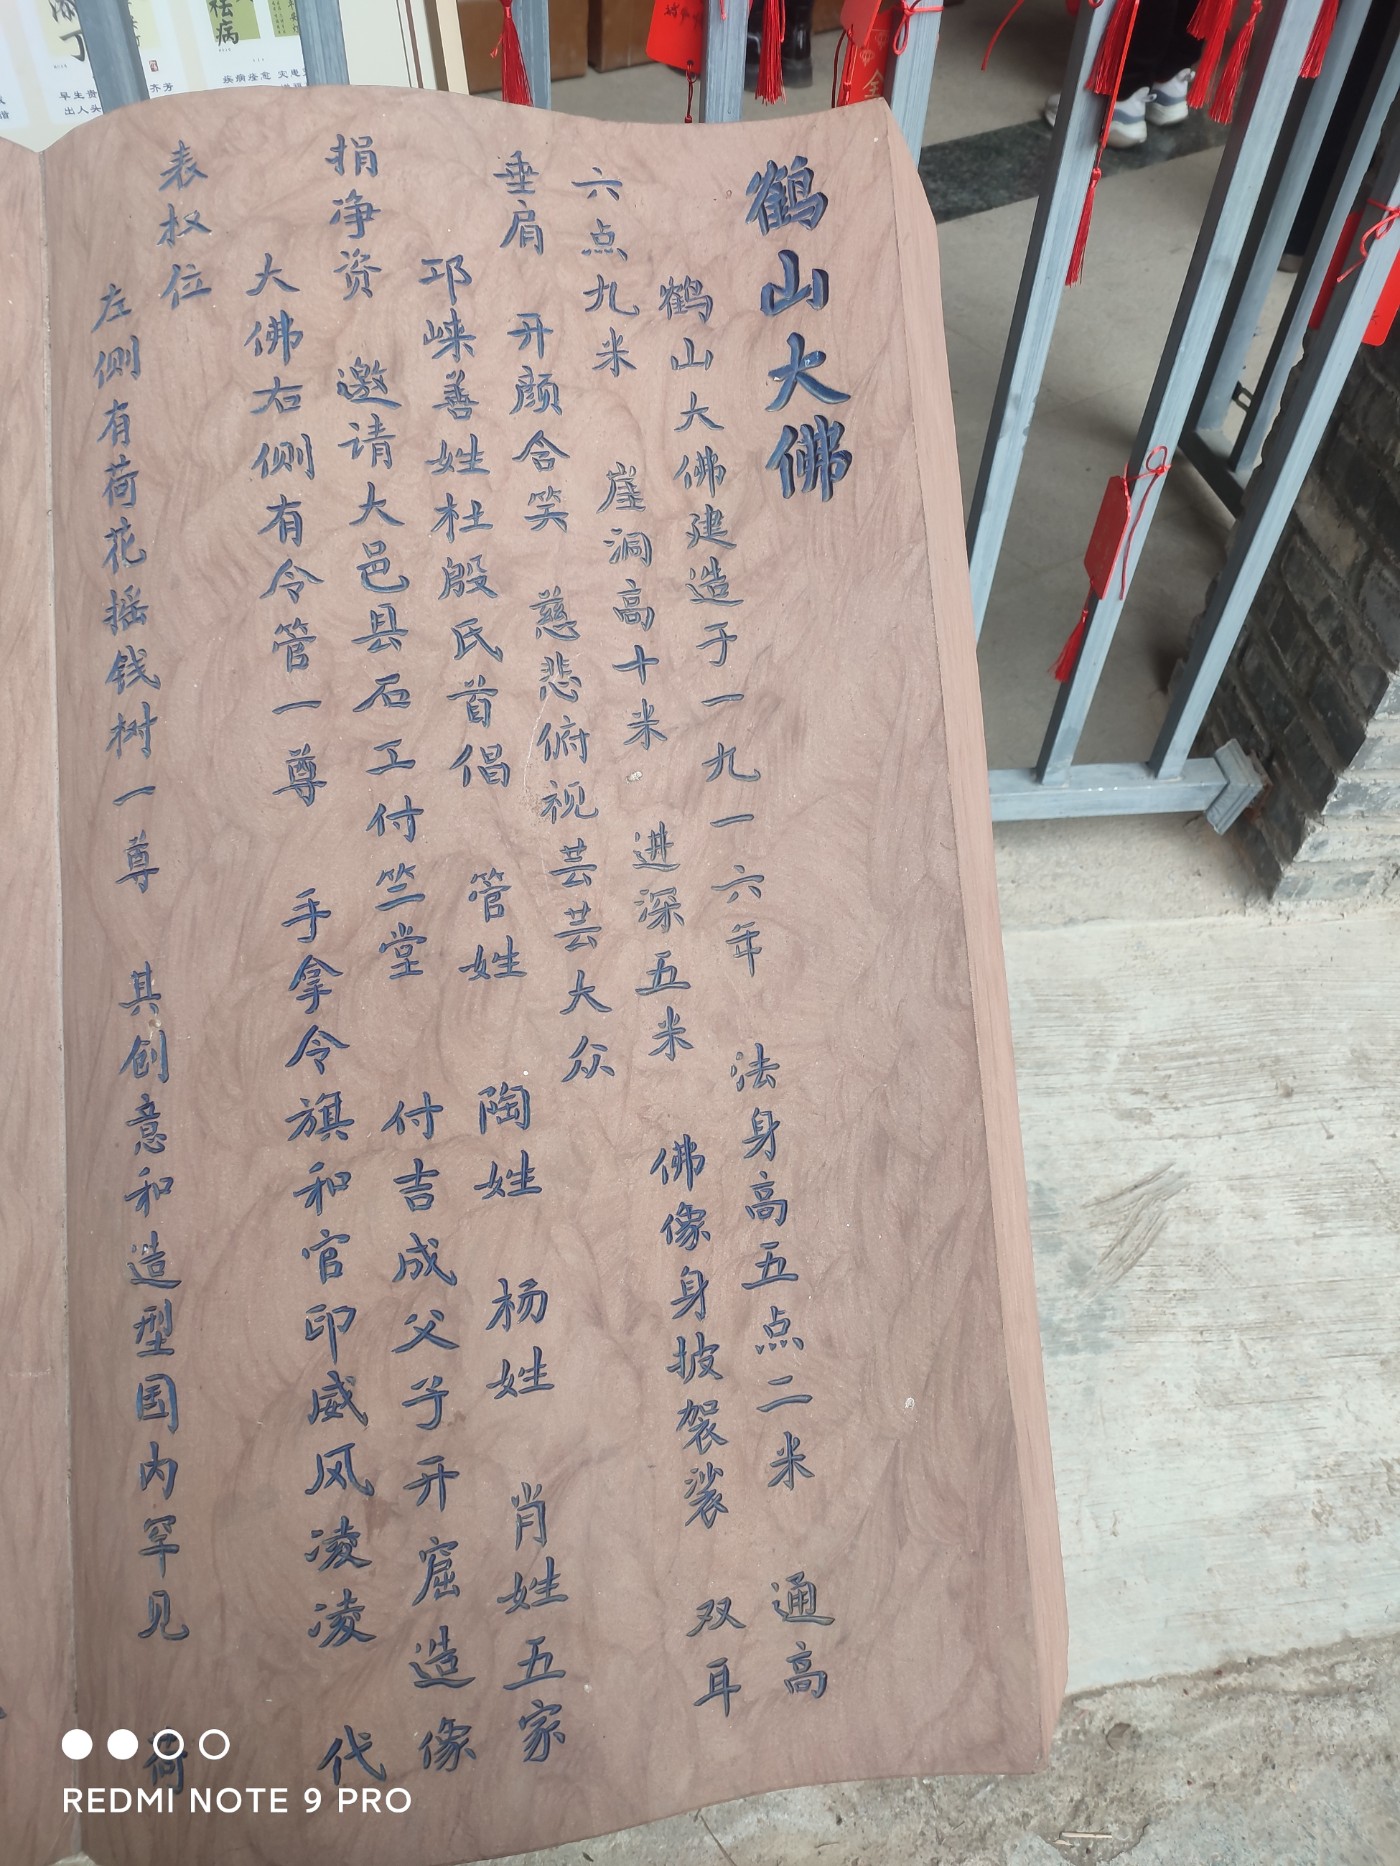 鹤山大佛
鹤山大佛建造于一九一六年 法身高五点二米 通高
六点九米 崖洞高十米 进深五米 佛像身披袈裟 双耳
垂肩 开颜含笑 慈悲俯视芸芸大众
邛崃善姓杜殷氏首倡 管姓 陶姓 杨姓 肖姓五家
捐净资 邀请大邑县石工付竺堂 付吉成父子开窟造像
大佛右侧有令管一尊 手拿令旗和官印威风凌凌 代
表权位
左侧有荷花摇钱树一尊 其创意和造型国内罕见 荷
祛病
疾病痊愈
早生贵
出人头
REDMI NOTE 9 PRO